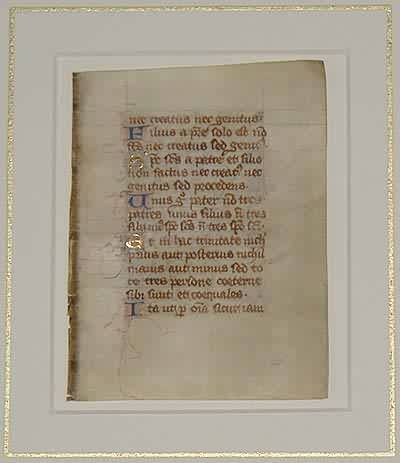 nec creatus nec genitus.
Filius a pr̄e solo est nō
fc̄s nec creatus sed genit⁹
Sp̄c sc̄s a patre et filio
non factus nec creat⁹ nec
genitus sed procedens.
Unus g̊ pater nō tres
patres unus filius n̄ tres
filii un⁹ sp̄c sc̄s n̄ tres sp̄c sc̄i.
Et in hac trinitate nich
prius aut posterius nichil
maius aut minus sed to
te tres persone coeterne
sibi sunt et coequales.
Ita ut p̱ om̄ia sicut iam